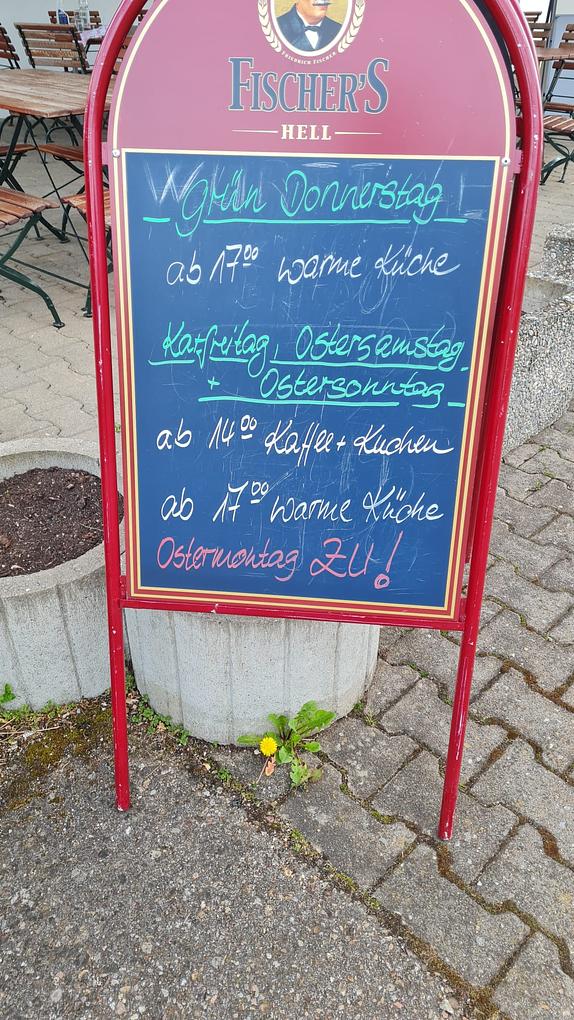 FRIEDRICH FISCHER
FISCHER'S
HELL
Grün Donnerstag
ab 17⁰⁰ warme Küche
Karfreitag, Ostersamstag,
+ Ostersonntag
ab 14⁰⁰ Kaffee + Kuchen
ab 17⁰⁰ warme Küche
Ostermontag ZU!